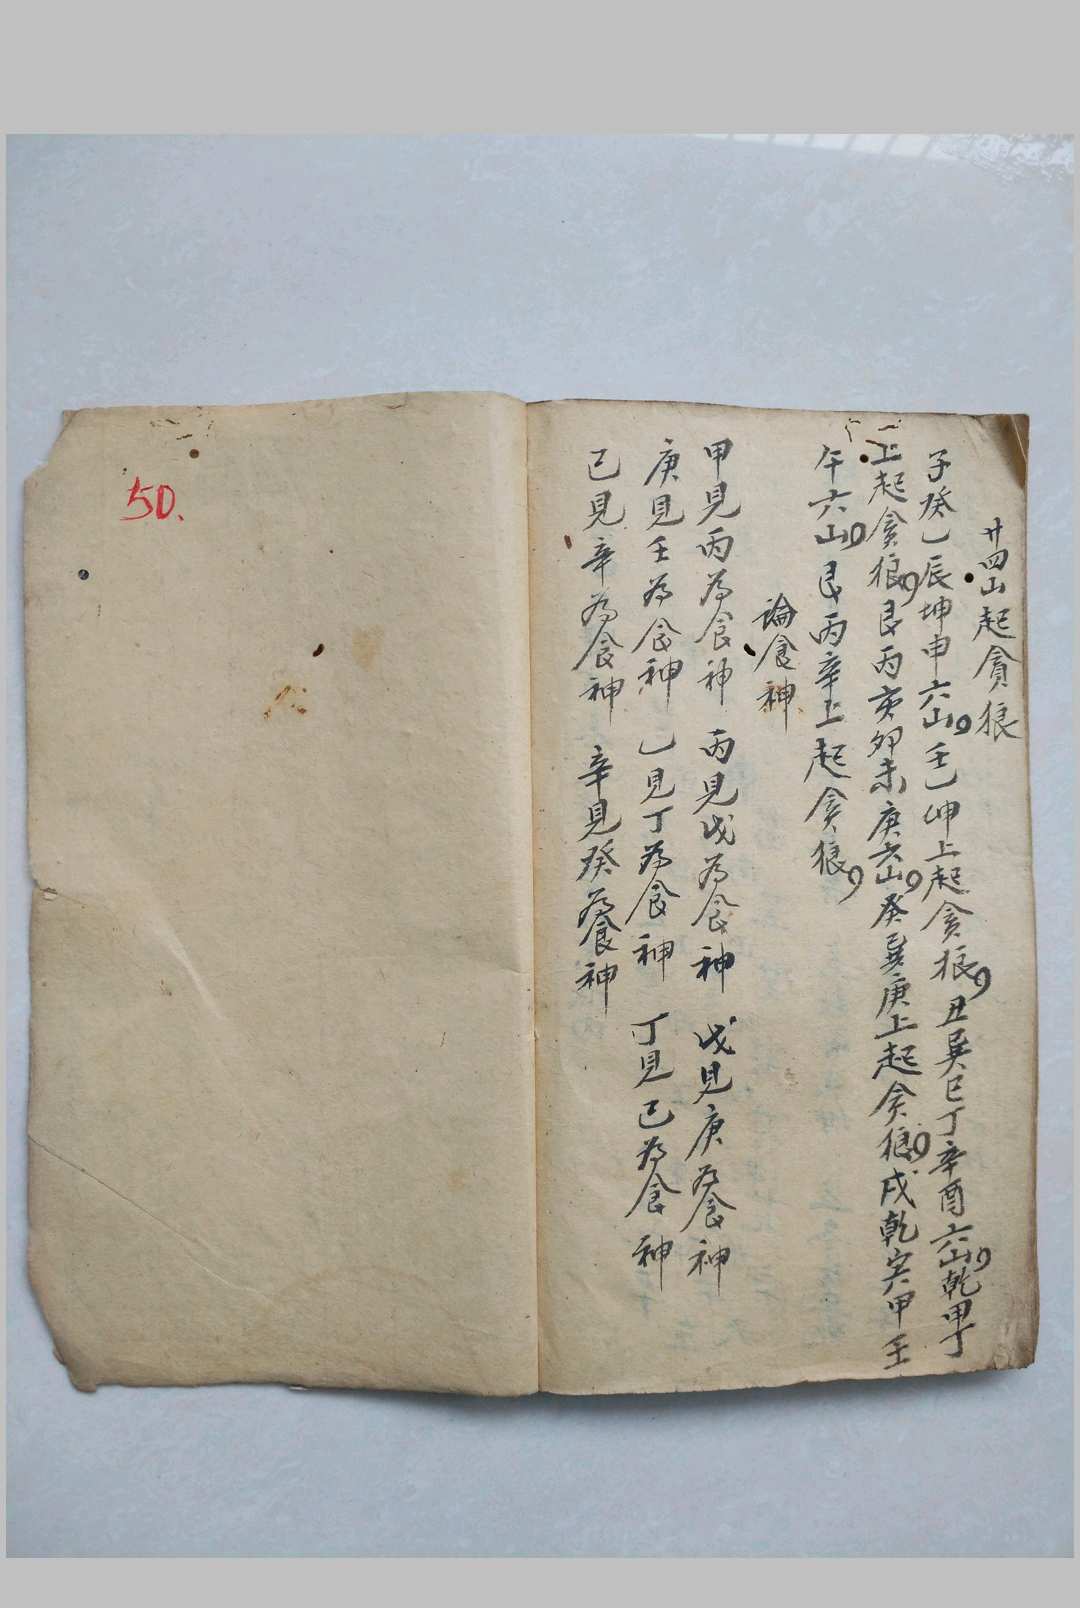 廿四山起貪狼
子癸乙辰坤申六山壬乙坤上起貪狼丑巽巳丁辛酉六山乾甲丁
上起貪狼艮丙亥卯未庚六山癸巽庚上起貪狼戌乾寅甲壬
午六山艮丙辛上起貪狼
論食神
甲見丙為食神 丙見戊為食神 戊見庚為食神
庚見壬為食神 乙見丁為食神 丁見己為食神
己見辛為食神 辛見癸為食神
50.